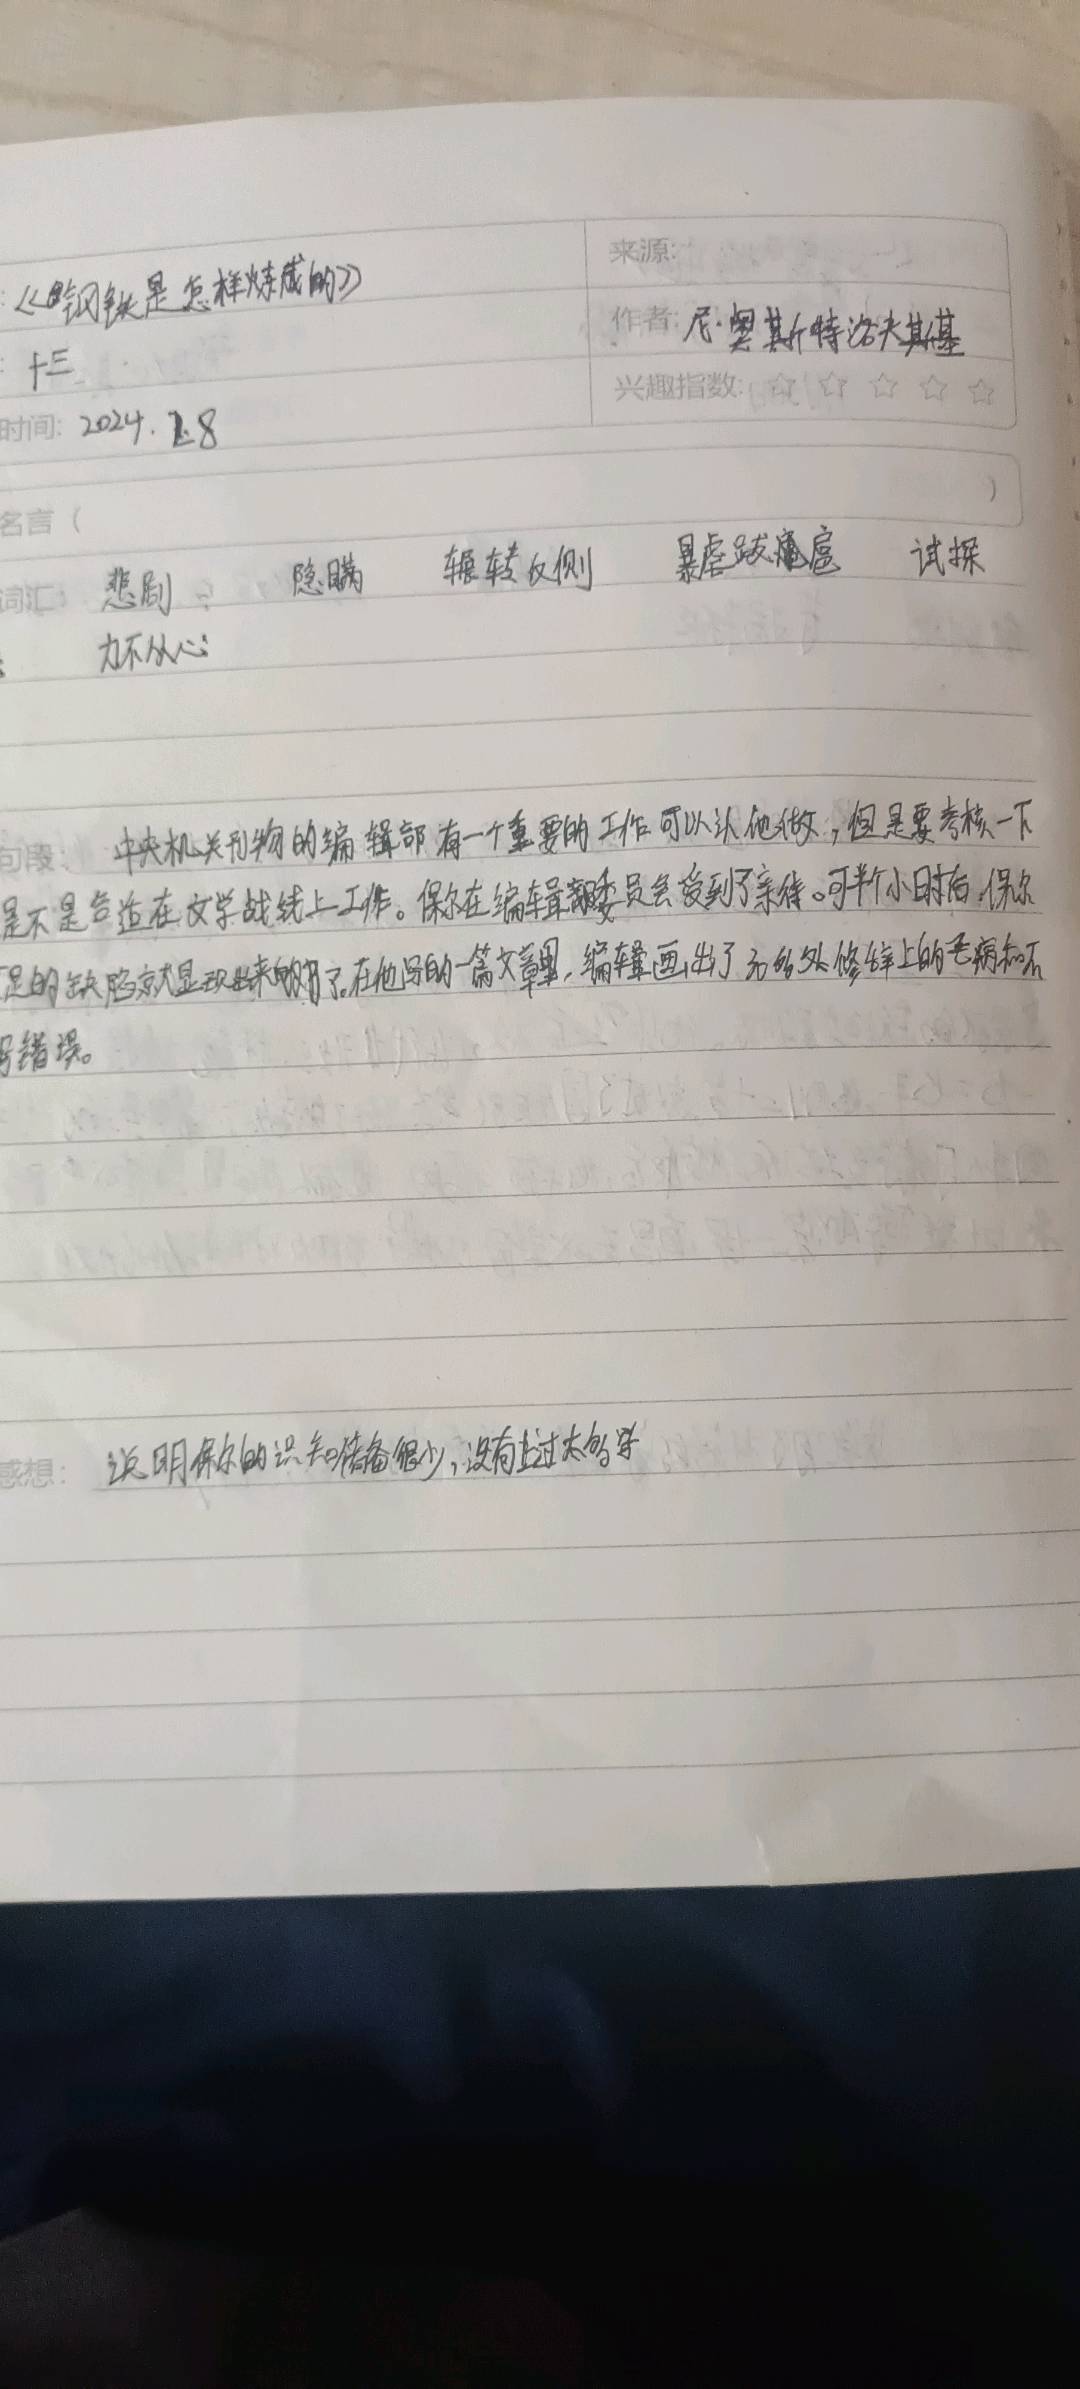 《钢铁是怎样炼成的》
来源:
作者: 尼·奥斯特洛夫斯基
十三
兴趣指数: ☆ ☆ ☆ ☆ ☆
时间: 2024. 1.8
名言 ( )
词汇: 悲剧 隐瞒 辗转反侧 暴虐跋扈 试探
力不从心
句段: 中央机关刊物的编辑部有一个重要的工作可以让他做,但是要考核一下
是不是合适在文学战线上工作。保尔在编辑部委员会受到了亲待。可半个小时后,保尔
足的缺陷就显现出来了。在他写的一篇文章里,编辑画出了30多处修辞上的毛病和不
写错误。
感想: 说明保尔的识知储备很少,没有上过太多学